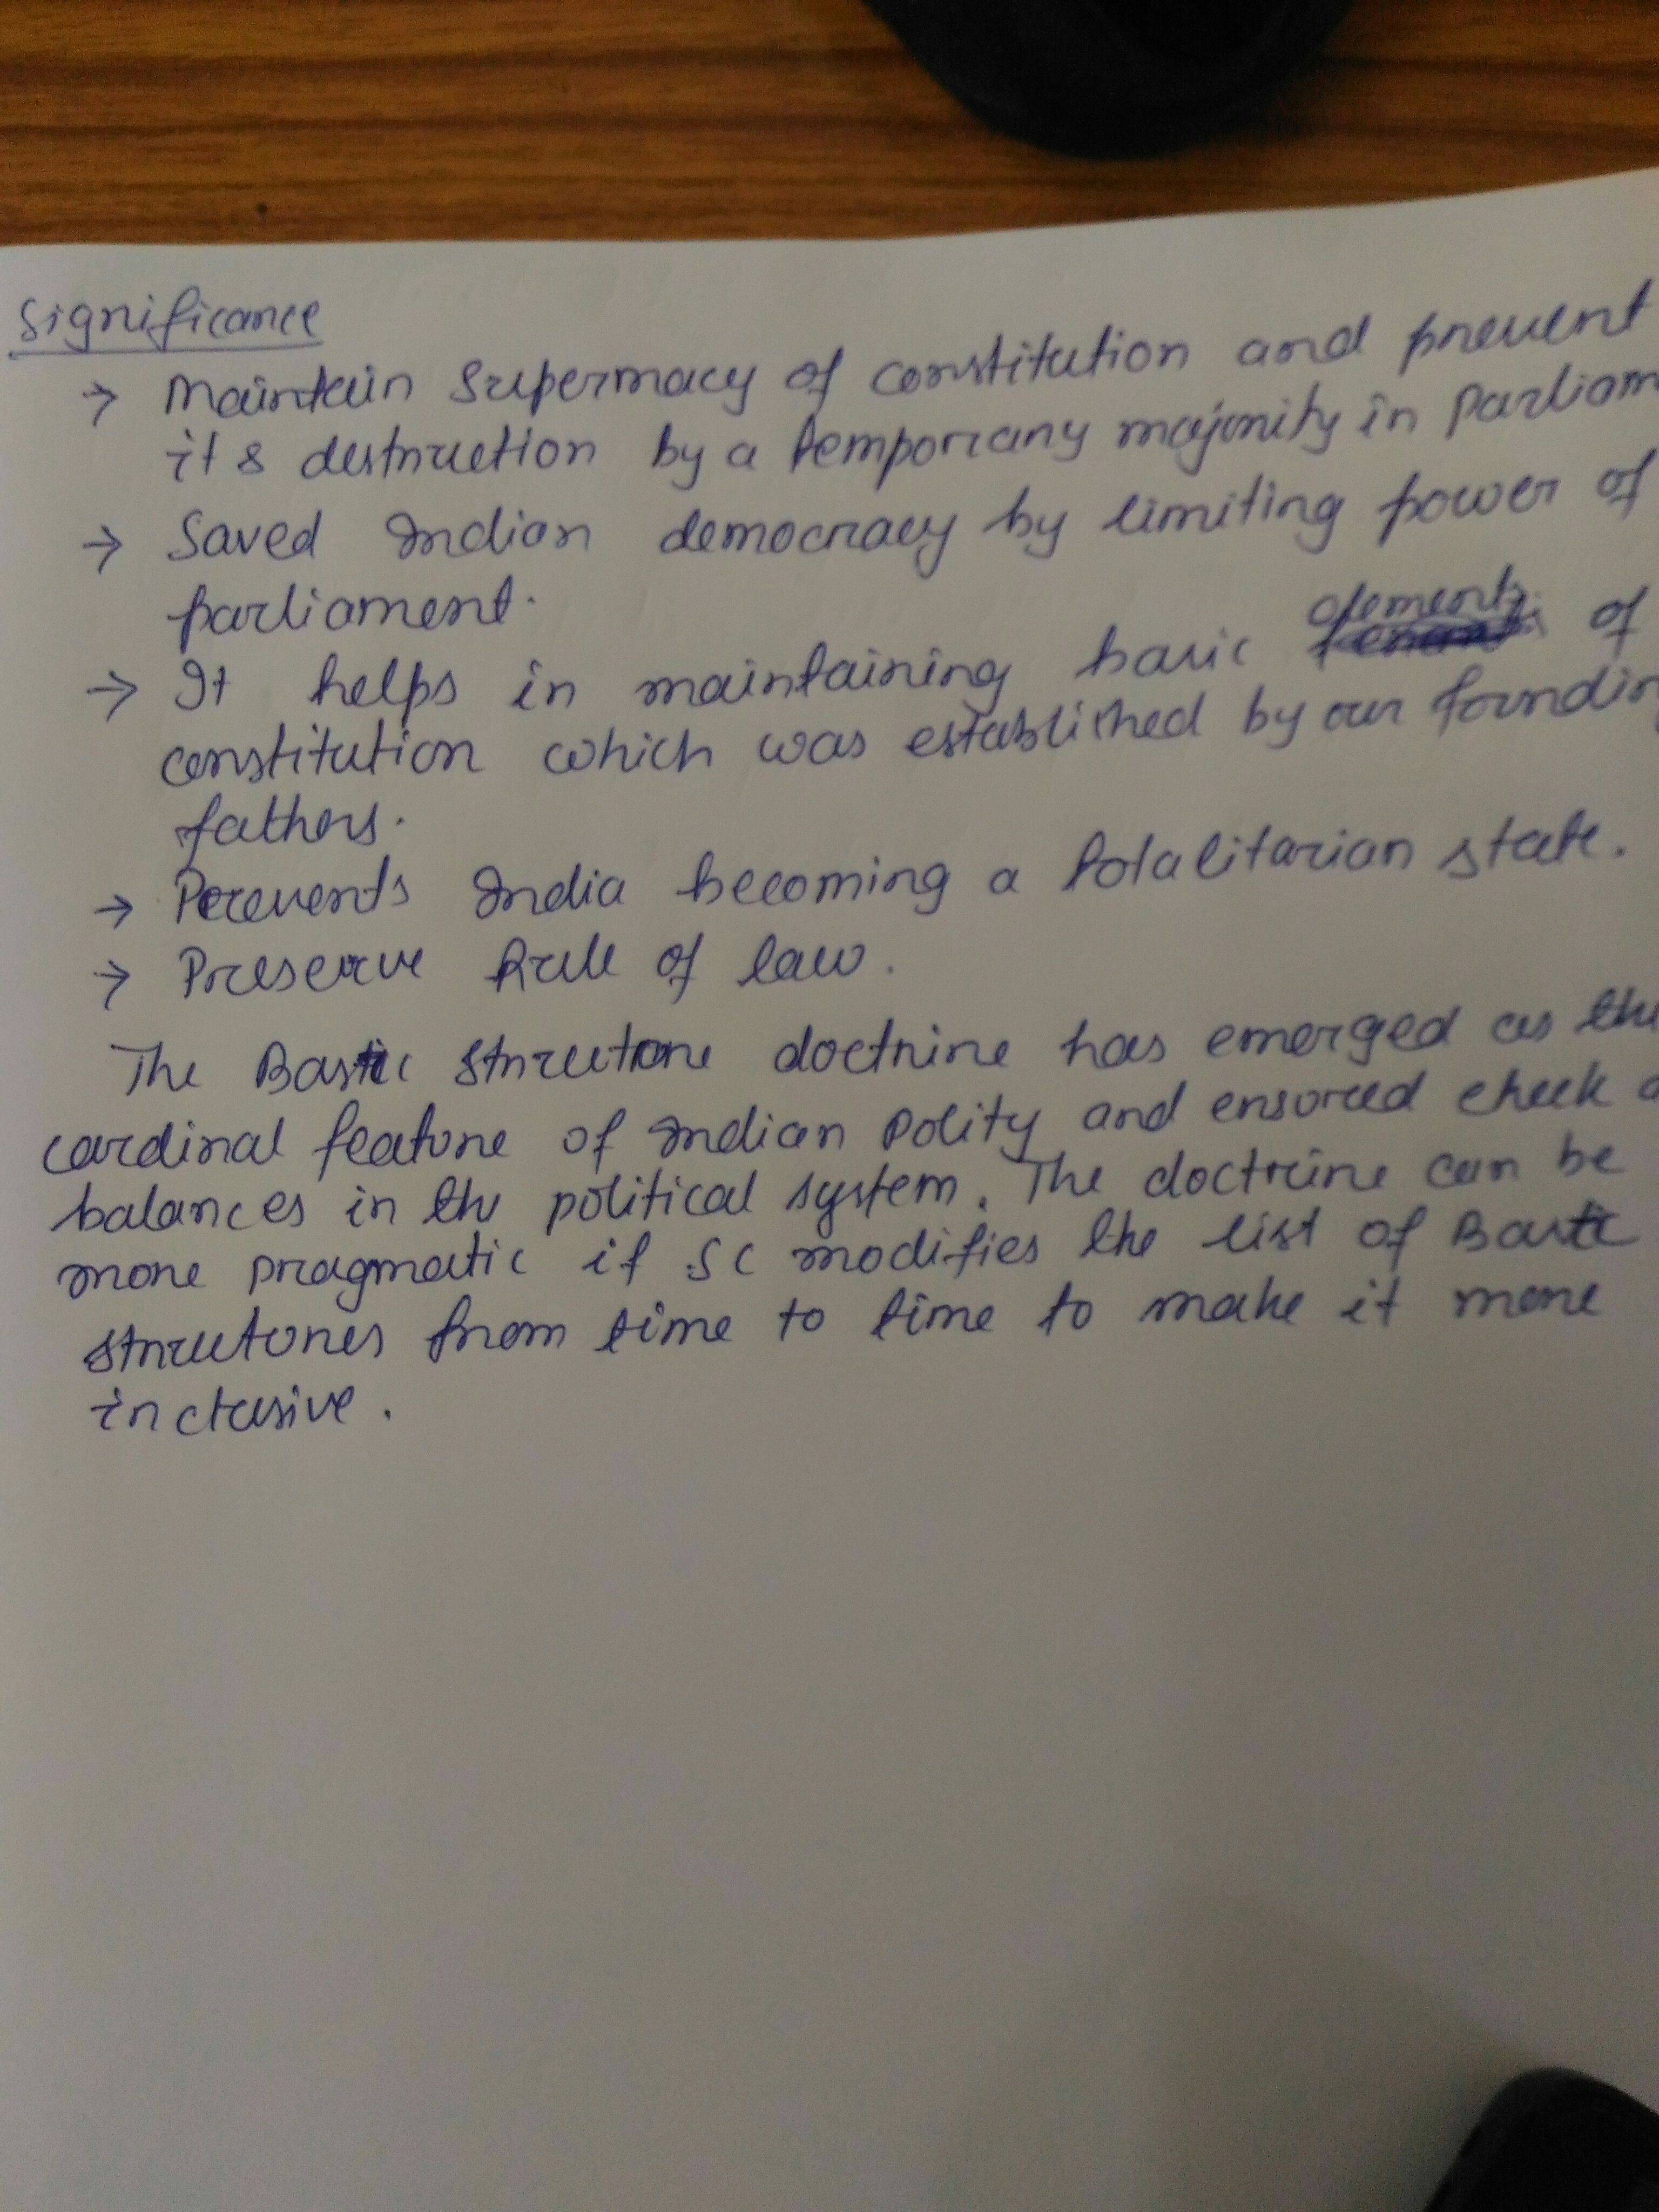 Significance
→ Maintain Supermacy of constitution and prevent
its destruction by a temporary majority in Parliam
→ Saved Indian democracy by limiting power of
parliament.
→ It helps in maintaining basic elements of
constitution which was established by our foundin
fathers.
→ Prevents India becoming a totalitarian state.
→ Preserve Rule of law.
The Basic structure doctrine has emerged as the
cardinal feature of Indian Polity and ensured check
balances in the political system. The doctrine can be
more pragmatic if SC modifies the list of Basic
structures from time to time to make it more
inclusive.